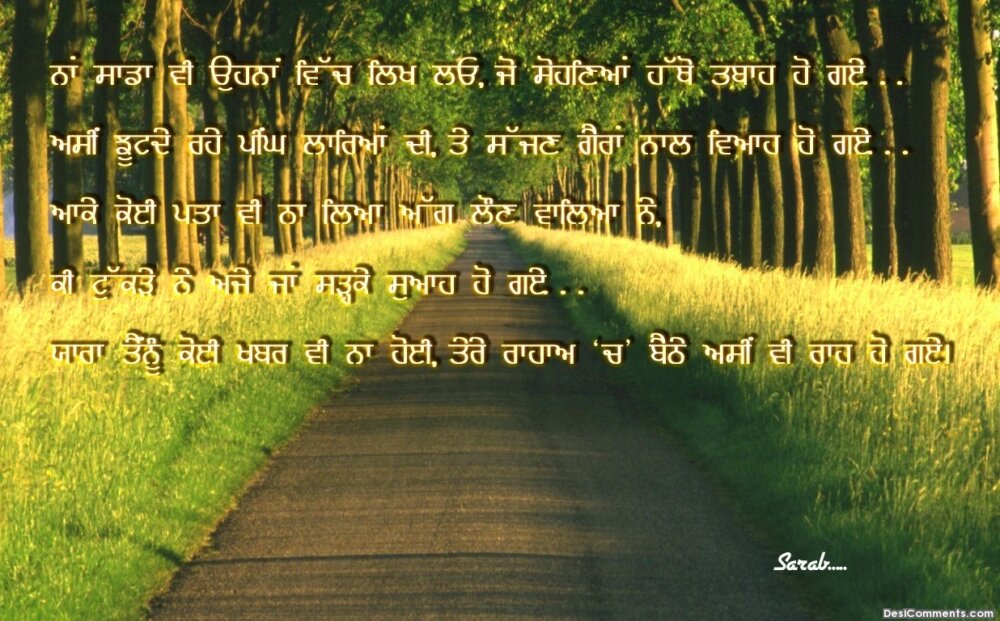 ਨਾਂ ਸਾਡਾ ਵੀ ਉਹਨਾਂ ਵਿੱਚ ਲਿਖ ਲਓ, ਜੋ ਸੋਹਣਿਆਂ ਹੱਥੋ ਤਬਾਹ ਹੋ ਗਏ...
ਅਸੀਂ ਝੂਟਦੇ ਰਹੇ ਪੀਂਘ ਲਾਰਿਆਂ ਦੀ, ਤੇ ਸੱਜਣ ਗੈਰਾਂ ਨਾਲ ਵਿਆਹ ਹੋ ਗਏ...
ਆਕੇ ਕੋਈ ਪਤਾ ਵੀ ਨਾ ਲਿਆ ਅੱਗ ਲੌਣ ਵਾਲਿਆ ਨੇ,
ਕੀ ਟੁੱਕੜੇ ਨੇ ਅਜੇ ਜਾਂ ਸੜ੍ਹਕੇ ਸੁਆਹ ਹੋ ਗਏ...
ਯਾਰਾ ਤੈਂਨੂੰ ਕੋਈ ਖਬਰ ਵੀ ਨਾ ਹੋਈ, ਤੇਰੇ ਰਾਹਾਅ ‘ਚ’ ਬੈਠੇ ਅਸੀਂ ਵੀ ਰਾਹ ਹੋ ਗਏ।
Sarab.....
DesiComments.com